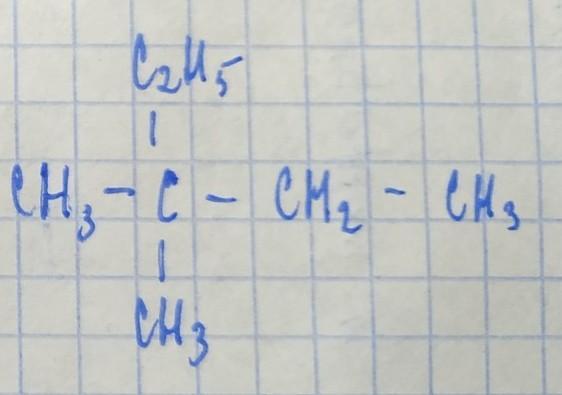 C₂H₅
|
CH₃ - C - CH₂ - CH₃
|
CH₃